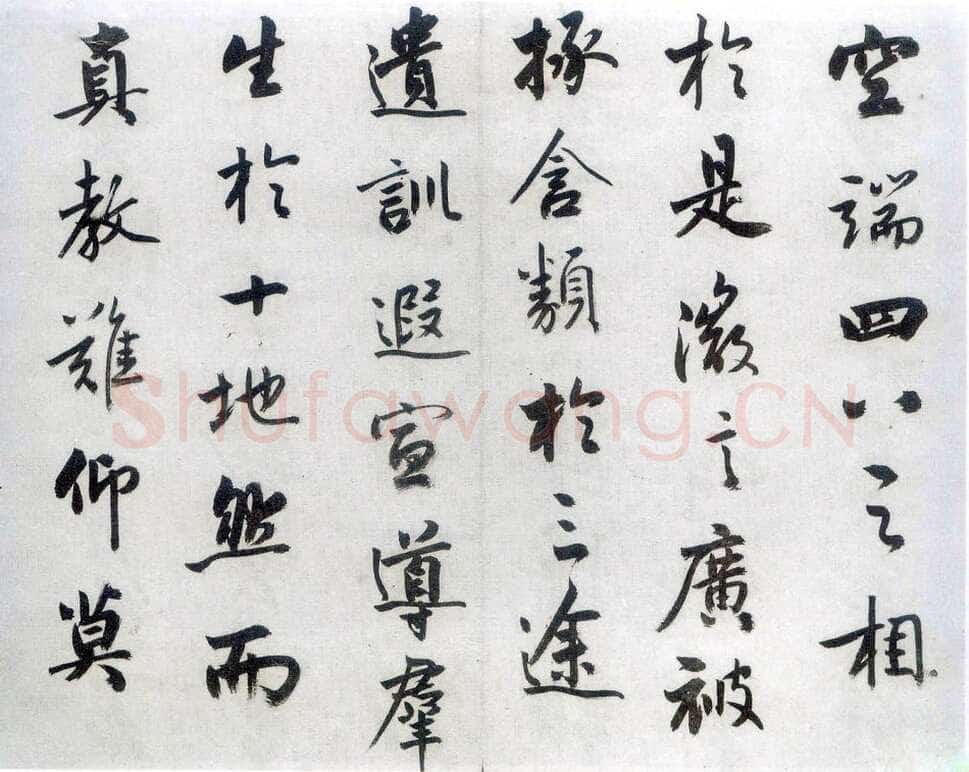 空端四八之相
於是微言廣被
拯含類於三途
遺訓遐宣導羣
生於十地然而
真教難仰莫
Shufawang.CN